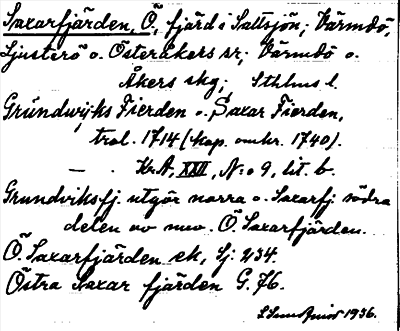 Saxarfjärden, Ö, fjärd i Saltsjön, Värmdö,
Ljusterö o. Österåkers sr; Värmdö o.
Åkers skg; Sthlms l.
Gründwijks Fierden o. Saxar Fierden,
trol. 1714 (kop. omkr. 1740).
— . Kr.A, XXII, N:o 9, lit. b.
Grundviksfj. utgör norra o. Saxarfj södra
delen av nuv. Ö. Saxarfjärden.
Ö. Saxarfjärden ek, Sj: 234.
Östra Saxar fjärden G. 76.
1936.